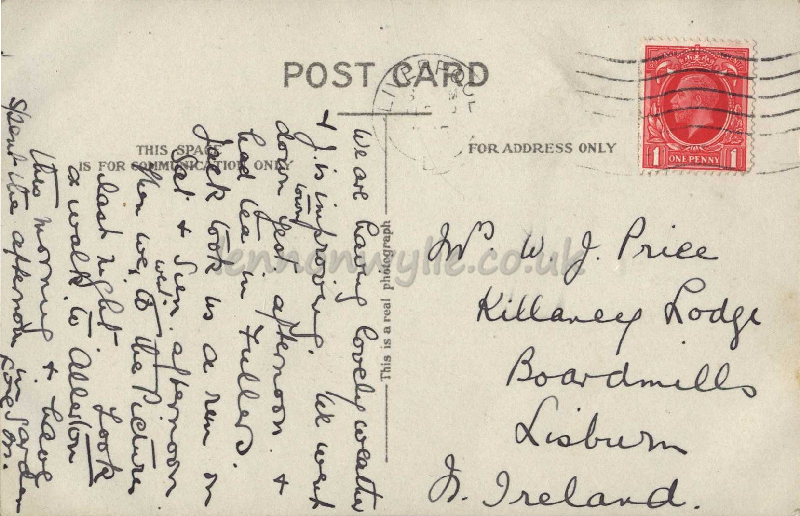 POST CARD
THIS SPACE
IS FOR COMMUNICATION ONLY
FOR ADDRESS ONLY
LIVERPOOL
1 ONE PENNY 1
This is a real photograph
lennonwylie.co.uk
We are having lovely weather
& J. is improving. We went
down town yest. afternoon &
had tea in Fullers.
Jack took us a run on
Sat & Sun. afternoon
then we went to the Pictures
last night. Took
a walk to Allerton
this morning & have
spent the afternoon in garden
Mrs W. J. Price
Killaney Lodge
Boardmills
Lisburn
N. Ireland.